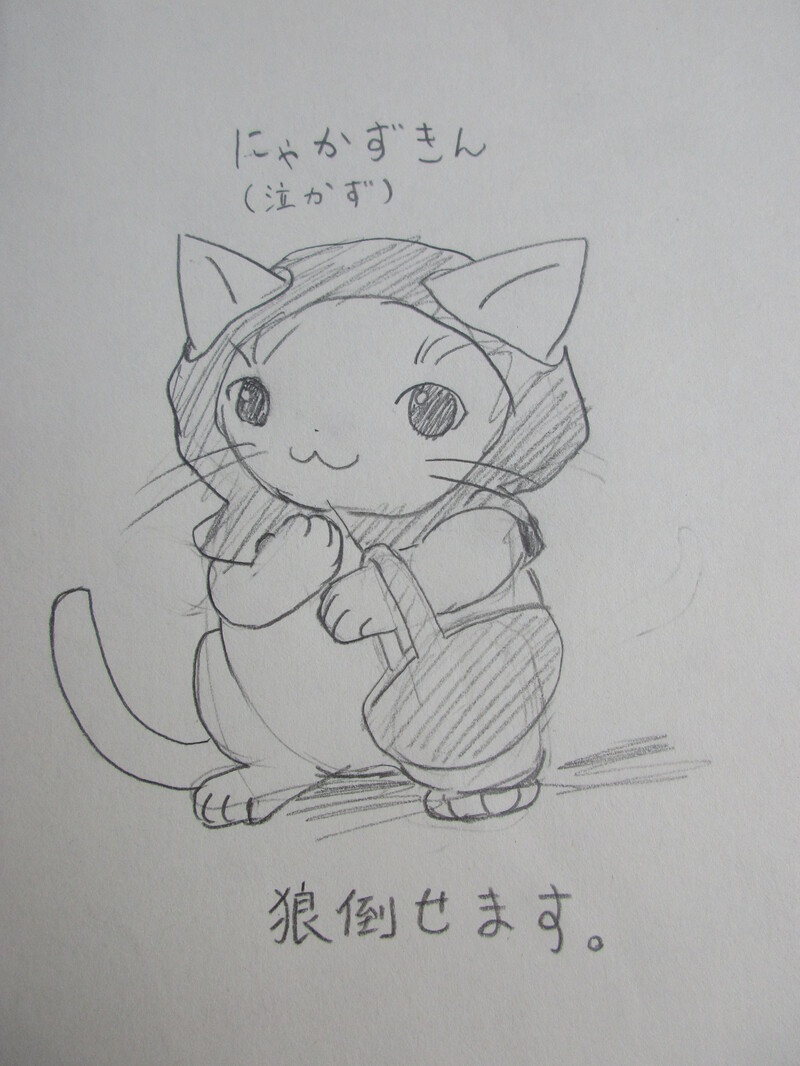 にゃかずきん
(泣かず)
狼倒せます。